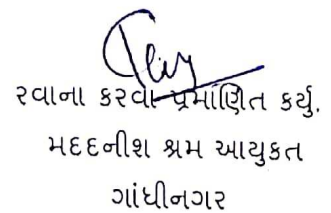 રવાના કરવા પ્રમાણિત કર્યુ.
મદદનીશ શ્રમ આયુકત
ગાંધીનગર